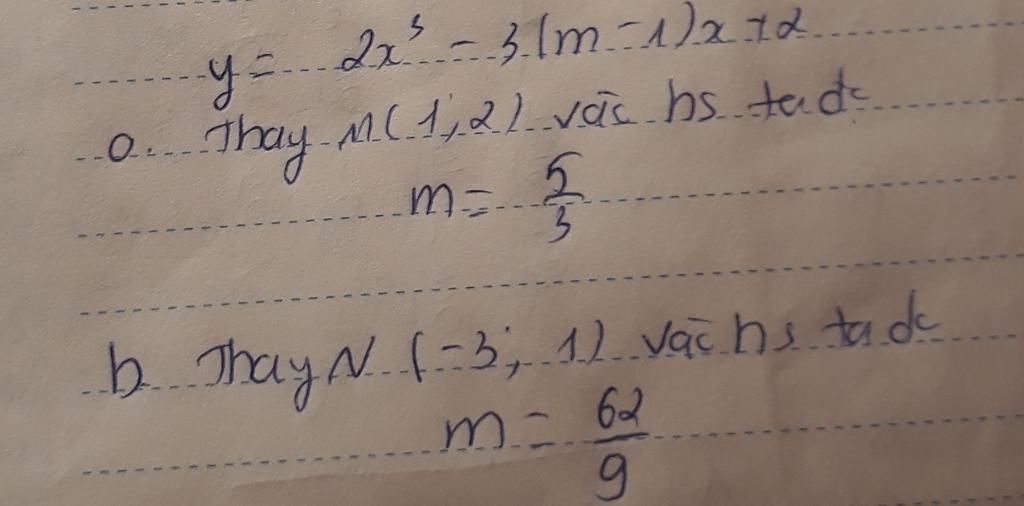 y = 2x³ - 3(m-1)x + 2
a. Thay M(1;2) vào hs ta dc
m = 5/3
b. Thay N (-3; 1) vào hs ta dc
m = 62/9